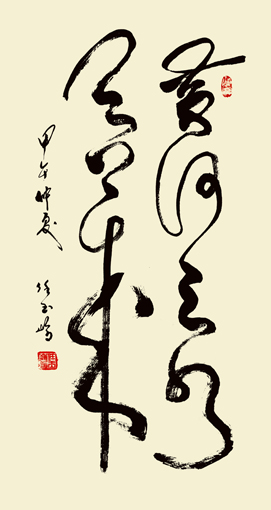 黄河之水
天上来
甲午仲夏 任玉岭